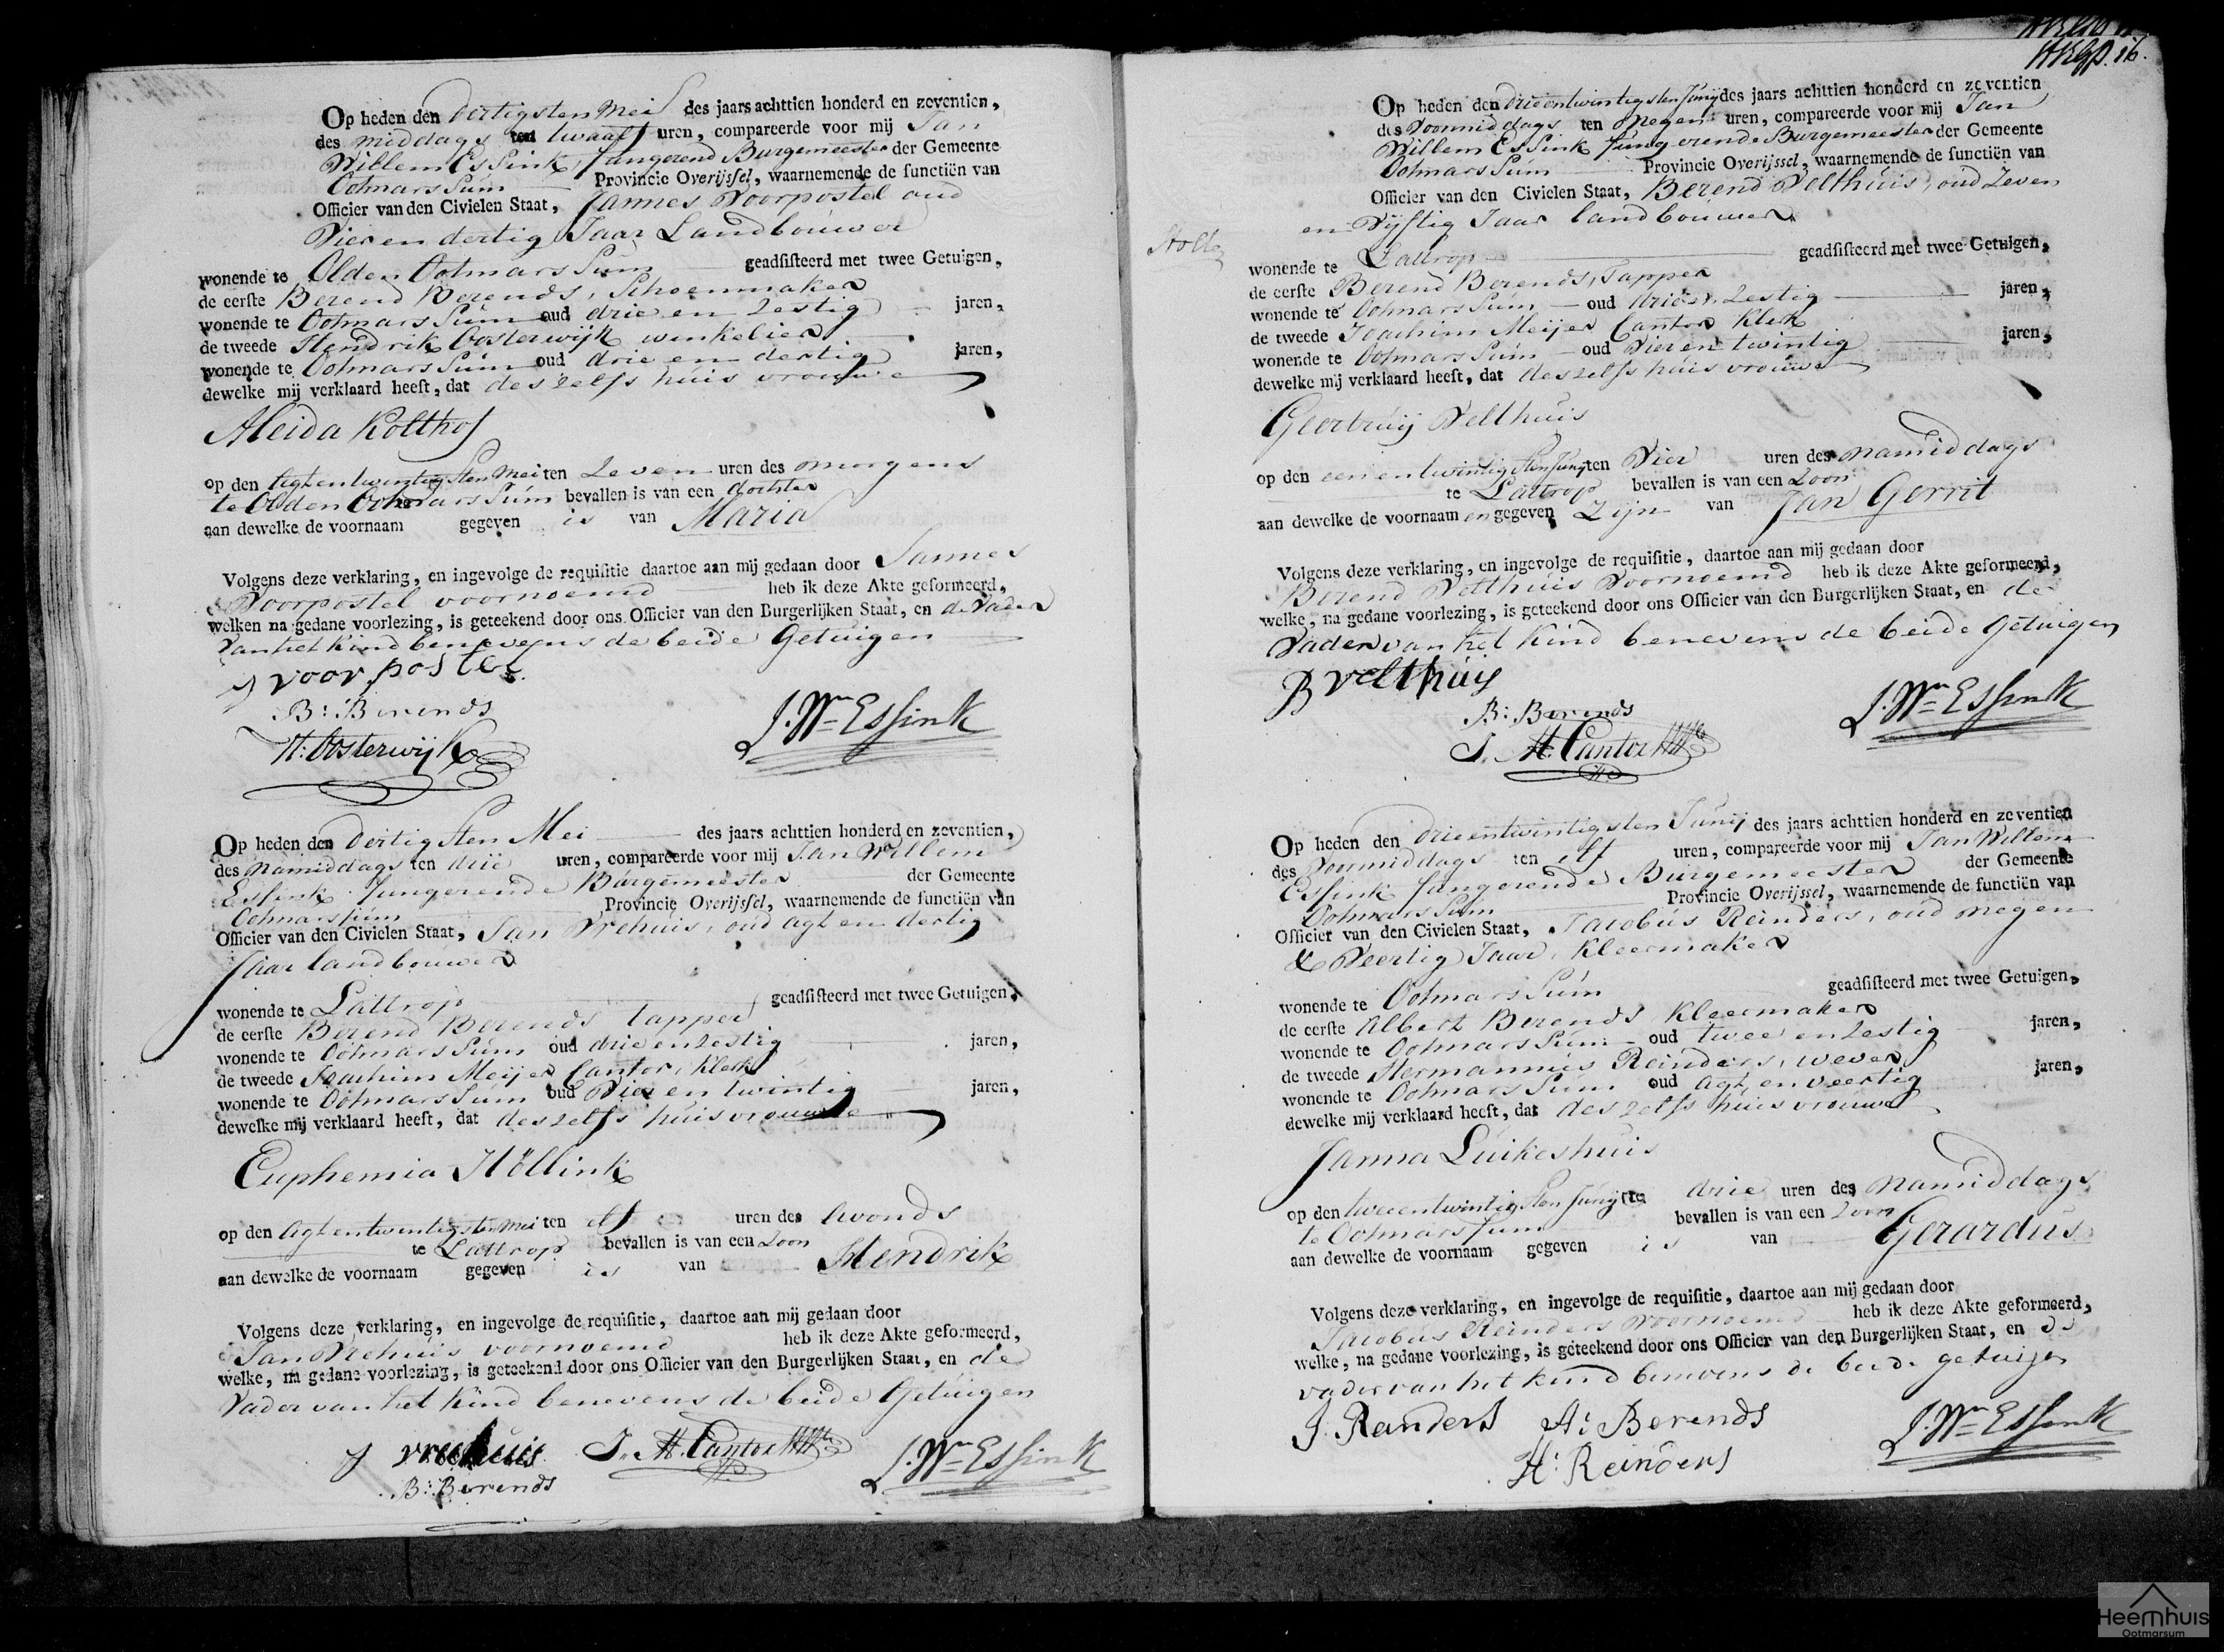 Op heden den dertigsten Mei des jaars achttien honderd en zeventien,
des middags ten twaalf uren, compareerde voor mij Jan
Willem Essink, fungerend Burgemeester der Gemeente
Ootmarssum Provincie Overijssel, waarnemende de functiën van
Officier van den Civielen Staat, Jannes Voorpostel oud
Vier en dertig Jaar Landbouwer
wonende te Olden Ootmarssum geadsisteerd met twee Getuigen,
de eerste Berend Berends, Schoenmaker
wonende te Ootmarssum oud drie en Zestig jaren,
de tweede Hendrik Oosterwijk winkelier
wonende te Ootmarssum oud drie en dertig jaren,
dewelke mij verklaard heeft, dat deszelfs huis vrouwe
Aleida Kolthof
op den agt en twintigsten Mei ten Zeven uren des morgens
te Olden Ootmarssum bevallen is van een dochter
aan dewelke de voornaam gegeven is van Maria
Volgens deze verklaring, en ingevolge de requisitie daartoe aan mij gedaan door Jannes
Voorpostel voornoemd heb ik deze Akte geformeerd,
welken na gedane voorlezing, is geteekend door ons Officier van den Burgerlijken Staat, en de Vader
van het Kind benevens de beide Getuigen
J voorpostel
B: Berends
H: Oosterwijk
J. Wm Essink
Op heden den dertigsten Mei des jaars achttien honderd en zeventien,
des namiddags ten drie uren, compareerde voor mij Jan Willem
Essink fungerende Burgemeester der Gemeente
Ootmarssum Provincie Overijssel, waarnemende de functiën van
Officier van den Civielen Staat, Jan Vrehuis, oud agt en dertig
Jaar landbouwer
wonende te Lattrop geadsisteerd met twee Getuigen,
de eerste Berend Berends tapper
wonende te Ootmarssum oud drie en zestig jaren,
de tweede Joachim Meijer Cantor, klerk
wonende te Ootmarssum oud Vier en twintig jaren,
dewelke mij verklaard heeft, dat deszelfs huisvrouwe
Euphemia Nöllink
op den agt en twintigsten Mei ten elf uren des Avonds
te Lattrop bevallen is van een Zoon
aan dewelke de voornaam gegeven is van Hendrik
Volgens deze verklaring, en ingevolge de requisitie, daartoe aan mij gedaan door
Jan Vrehuis voornoemd heb ik deze Akte geformeerd,
welke, na gedane voorlezing, is geteekend door ons Officier van den Burgerlijken Staat, en de
Vader van het Kind benevens de beide Getuigen
J vreehuis J. M. Cantor J. Wm Essink
B: Berends
Op heden den drieentwintigsten Junij des jaars achttien honderd en zeventien
des Voormiddags ten negen uren, compareerde voor mij Jan
Willem Essink fungerende Burgemeester der Gemeente
Ootmarssum Provincie Overijssel, waarnemende de functiën van
Officier van den Civielen Staat, Berend Velthuis, oud Zeven
en Vijftig Jaar landbouwer
wonende te Lattrop geadsisteerd met twee Getuigen,
de eerste Berend Berends, Tapper
wonende te Ootmarssum oud drie en Zestig jaren,
de tweede Joachim Meijer Cantor Klerk
wonende te Ootmarssum oud Vier en twintig jaren,
dewelke mij verklaard heeft, dat deszelfs huis vrouwe
Geertruij Velthuis
op den een en twintigsten Junij ten Vier uren des namiddags
te Lattrop bevallen is van een Zoon
aan dewelke de voornaamen gegeven Zijn van Jan Gerrit
Volgens deze verklaring, en ingevolge de requisitie, daartoe aan mij gedaan door
Berend Velthuis Voornoemd heb ik deze Akte geformeerd,
welke, na gedane voorlezing, is geteekend door ons Officier van den Burgerlijken Staat, en de
Vader van het Kind benevens de beide Getuigen
B velthuis
B: Berends
J. M. Cantor
J. Wm Essink
Op heden den drieentwintigsten Junij des jaars achttien honderd en zeventien
des Voormiddags ten elf uren, compareerde voor mij Jan Willem
Essink fungerende Burgemeester der Gemeente
Ootmarssum Provincie Overijssel, waarnemende de functiën van
Officier van den Civielen Staat, Jacobus Reinders, oud negen
& Veertig Jaar, Kleermaker
wonende te Ootmarssum geadsisteerd met twee Getuigen,
de eerste Albert Berends Kleermaker
wonende te Ootmarssum oud twee en zestig jaren,
de tweede Hermannus Reinders, wever
wonende te Ootmarssum oud agt en veertig jaren,
dewelke mij verklaard heeft, dat deszelfs huisvrouwe
Janna Luikeshuis
op den tweeentwintigsten Junij te drie uren des namiddags
te Ootmarssum bevallen is van een Zoon
aan dewelke de voornaam gegeven is van Gerardus
Volgens deze verklaring, en ingevolge de requisitie, daartoe aan mij gedaan door
Jacobus Reinders voornoemd heb ik deze Akte geformeerd,
welke, na gedane voorlezing, is geteekend door ons Officier van den Burgerlijken Staat, en de
vader van het kind benevens de beide getuigen
J. Reinders A: Berends J. Wm Essink
H: Reinders
Heemhuis
Ootmarsum